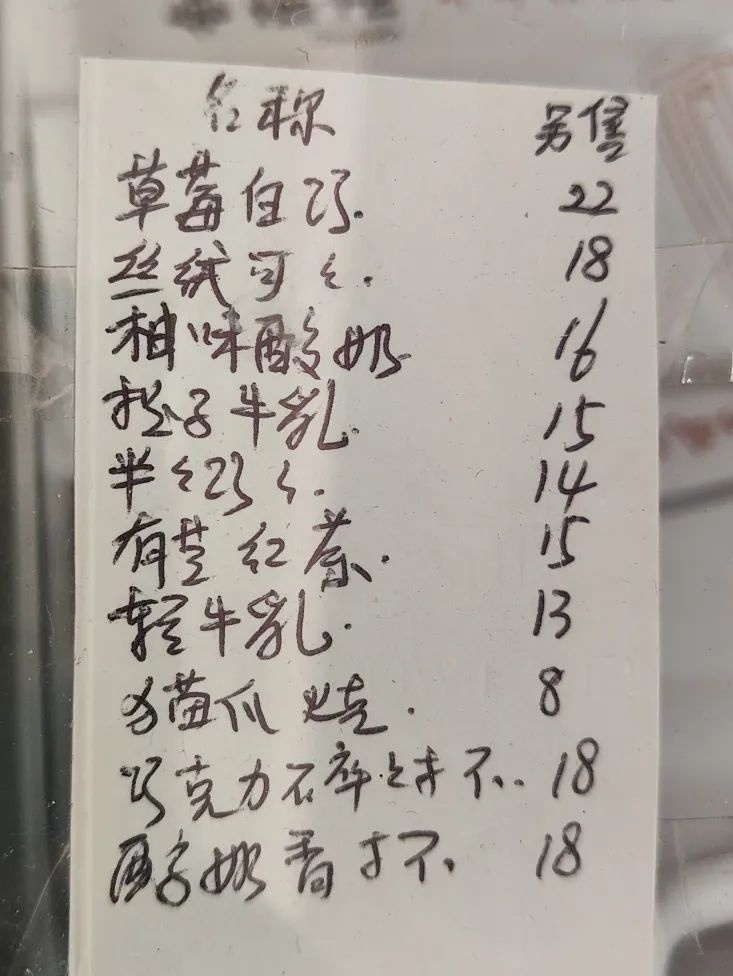 名称 另售
草莓白巧. 22
丝绒可可. 18
柚味酸奶 16
松子牛乳. 15
半红巧.
14
有芝红茶. 15
轻牛乳. 13
猫爪烧. 8
巧克力石卒杯. 18
酸奶香杯. 18